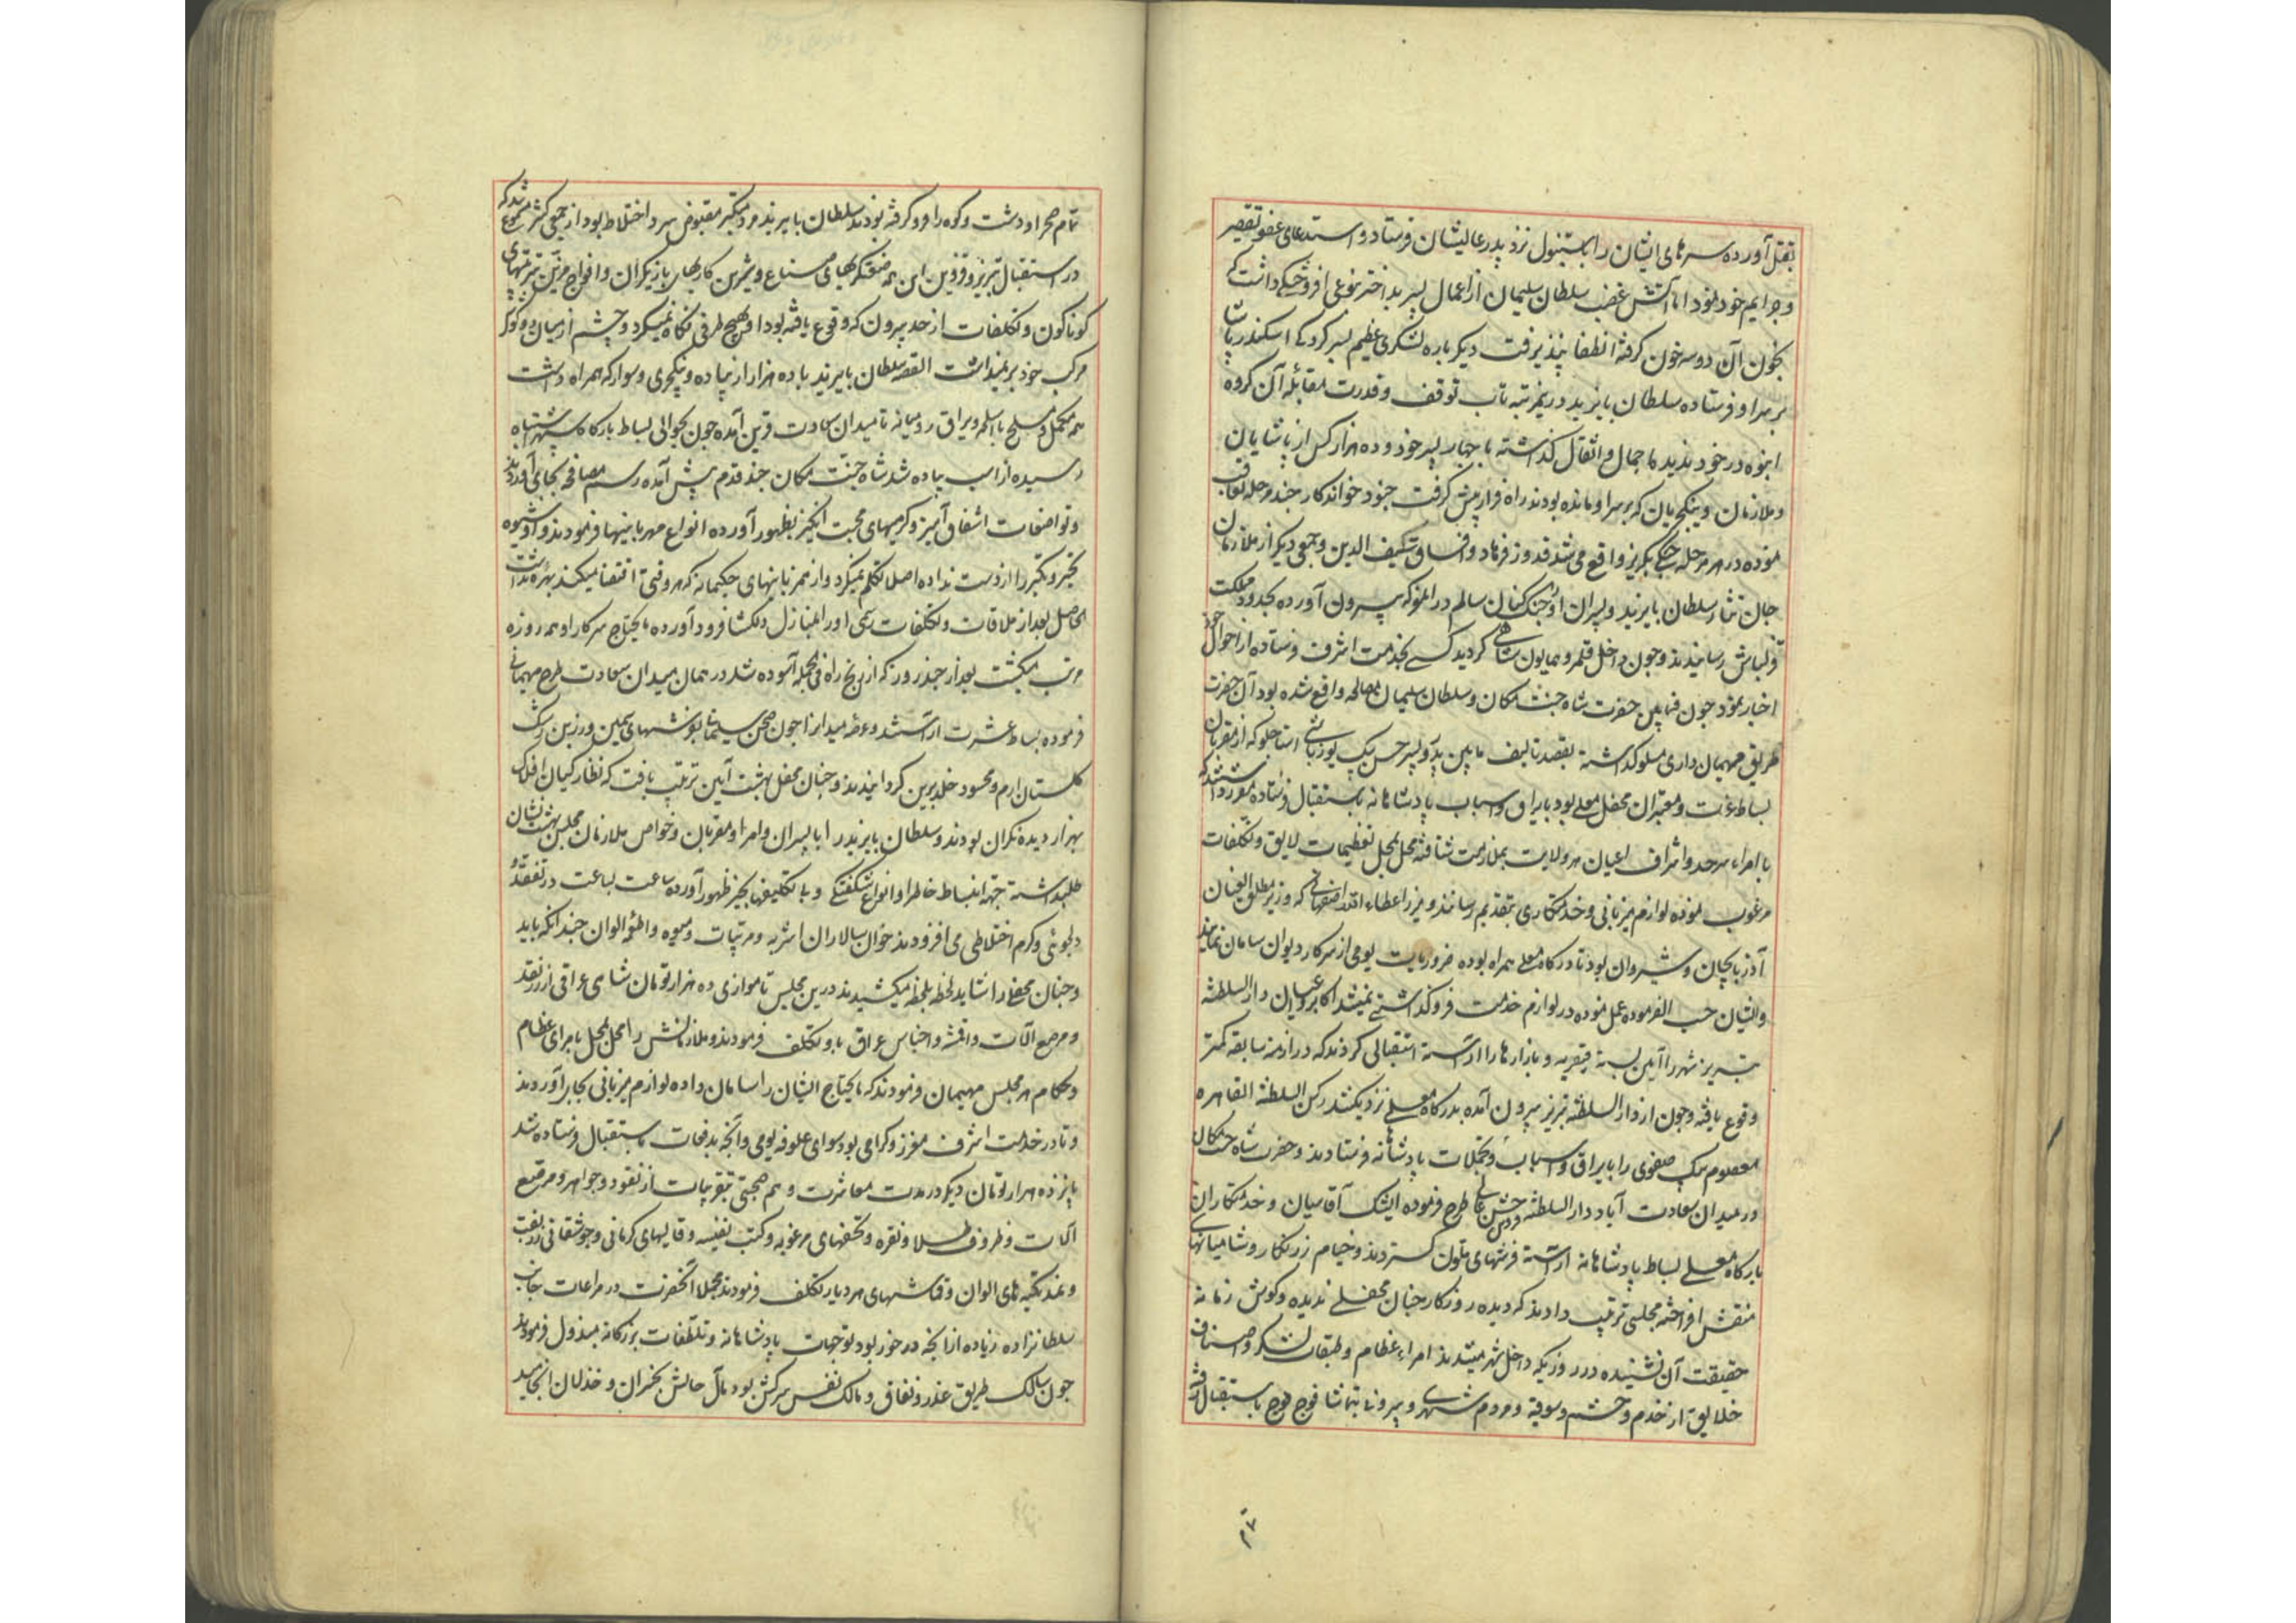 بقتل آورده سرهای ایشان را باستنبول نزد پدر عالیشان فرستاد و استدعای عفو تقصیر
و جرایم خود نمود اما آتش غضب سلطان سلیمان از اعمال پسر بداختر نوعی افروختگی داشت که
بخون آن دو سه خون گرفته انطفا پذیرفت دیگر باره لشکری عظیم بسرکردگی اسکندر پاشا
بر سر او فرستاده سلطان بایزید درینمرتبه تاب توقف و قدرت مقابله آن گروه
انبوه در خود ندید احمال و اثقال گذاشته با چهار پسر خود و ده هزار کس از پاشایان
و ملازمان و ینکچریان که بر سر او مانده بودند راه فرار پیش گرفت جنود خواندکار چند مرحله تعاقب
نموده در هر مرحله جنگ بگریز واقع می شد قدوز فرهاد و اقساق سیف الدین و جمعی دیگر از ملازمان
جان نثار سلطان بایزید و پسران او را جنک کنان سالم از المعرکه بیرون آورده بحدود مملکت
قزلباش رسانیدند و چون داخل قلمرو همایون شاهی گردید کسی بخدمت اشرف فرستاده از احوال خود
اخبار نمود چون فیمابین حضرت شاه جنت مکان و سلطان سلیمان مصالحه واقع شده بود آن حضرت
طریق مهمان داری مسلوک داشته بقصد تالیف مابین پدر و پسر حسن بیک یوزباشی استاجلو که از مقربان
بساط عزت و معتبران محفل معلی بود با یراق و اسباب پادشاهانه باستقبال فرستاده مقرر داشتند که
با امراء سرحد و اشراف اعیان هر ولایت بملازمت شتافته محل بمحل تعظیمات لایق و تکلفات
مرغوب نموده لوازم میزبانی و خدمتکاری بتقدیم رسانند و میرزا عطاء الله اصفهانی که وزیر مطلق العنان
آذربایجان و شیروان بود تا درگاه معلی همراه بوده ضروریات یومی از سرکار دیوان سامان نماید
و ایشان حسب الفرموده عمل نموده در لوازم خدمت فروگذاشتی نمیشد اکابر و اعیان دارالسلطنه
تبریز شهر را آیین بسته قیصریه و بازارها را آراسته استقبالی کردند که در ازمنه سابقه کمتر
وقوع یافته و چون از دار السلطنه تبریز بیرون آمده بدرگاه معلی نزدیک شد رکن السلطنه القاهره
معصوم بیک صفوی را با یراق و اسباب و تجملات پادشاهانه فرستادند و حضرت شاه جنت مکان
در میدان سعادت آباد دار السلطنه قزوین جشن عالی طرح فرموده ایشک آقاسیان و خدمتکاران
بارگاه معلی بساط پادشاهانه آراسته فرشهای ملون گستردند و خیام زرنگار و شامیانهای
منقش افراخته مجلسی ترتیب دادند که دیده روزکار چنان محفلی ندیده و گوش زمانه
حقیقت آن نشنیده در روزیکه داخل شهر میشدند امراء عظام و طبقات لشکر و اصناف
خلایق از خدم و حشم و سوقیه و مردم شهری و بیرونی بتماشا فوج فوج باستقبال رفته
تمام صحرا و دشت و کوه را فرو گرفته بودند سلطان بایزید مرد متکبر مقبوض سرد اختلاط بود از جمعی کثیر مسموع شد که
در استقبال تبریز و قزوین این همه صنعتگریهای صناع و شیرین کاریهای بازیگران و افواج مزین ترتیبهای
کوناکون و تکلفات از حد بیرون که وقوع یافته بود او بهیچ طرفی نگاه نمیکرد و چشم از میان دو گوش
مرکب خود برنمیداشت القصه سلطان بایزید با ده هزار از پیاده و ینکچری و سوار که همراه داشت
همه مکمل و مسلح با اسلحه و یراق رومیانه تا میدان سعادت قزوین آمده چون بحوالی بساط بارگاه سپهر اشتباه
رسیده از اسب پیاده شد شاه جنت مکان چند قدم پیش آمده رسم مصافحه بجای آوردند
و تواضعات اشفاق آمیز و گرمیهای محبت انگیز بظهور آورده انواع مهربانیها فرمودند و او شیوه
تجبر و تکبر را از دست نداده اصلا تکلم نمیکرد و از همزبانیهای حکیمانه که هر وقتی اقتضا میکند بهره نداشت
الحاصل بعد از ملاقات و تکلفات رسمی او را بمنازل دلگشا فرود آورده مایحتاج سرکار او همه روزه
مرتب میگشت بعد از چند روز که از رنج راه فی الجمله آسوده شد در همان میدان سعادت طرح مهمانی
فرموده بساط عشرت آراستند و عرصه میدان را چون صحن سینما بفرشهای سیمین و زرین رشک
گلستان ارم و محسود خلد برین گردانیدند و چنان محفل بهشت آیین ترتیب یافت که نظارگیان افلاک
بهزار دیده نگران بودند و سلطان بایزید را با پسران و امرا و مقربان و خواص ملازمان بمجلس بهشت نشان
طلب داشته جهة انبساط خاطر او انواع شگفتگی و بی تکلیفیها بحیز ظهور آورده ساعت بساعت در تفقد و
دلجوئی و گرم اختلاطی می افزودند خوان سالاران اشربه و مرتبات و میوه و اطعمه الوان چندانکه باید
و چنان محفلی را شاید لحظه بلحظه میکشیدند درین مجلس تا موازی ده هزار تومان شاهی عراقی از زر نقد
و مرصع آلات و اقمشه و اجناس عراق باو تکلف فرمودند و ملازمانش را محل بمحل بامرای عظام
و حکام هر مجلس مهیمان فرمودند که مایحتاج ایشان را سامان داده لوازم میزبانی بجا آوردند
و تا در خدمت اشرف معزز و گرامی بود سوای علوفه یومی و آنچه بدفعات باستقبال فرستاده شد
پانزده هزار تومان دیگر در مدت معاشرت و هم صحبتی بتقریبات از نقود و جواهر و مرصع
آلات و ظروف طلا و نقره و تحفهای مرغوبه و کتب نفیسه و قالیهای کرمانی و جوشقانی زربفت
و نمد تکیه های الوان و قماشهای هر دیار تکلف فرمودند مجملا آنحضرت در مراعات جانب
سلطانزاده زیاده از آنچه در خور بود توجهات پادشاهانه و تلطفات بزرگانه مبذول فرمودند
چون سالک طریق عذر و نفاق و مالک نفس سرکش بود مآل حالش بخسران و خذلان انجامید